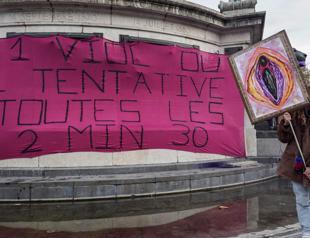 1 VIOL OU
TENTATIVE
TOUTES LES
2 MIN 30